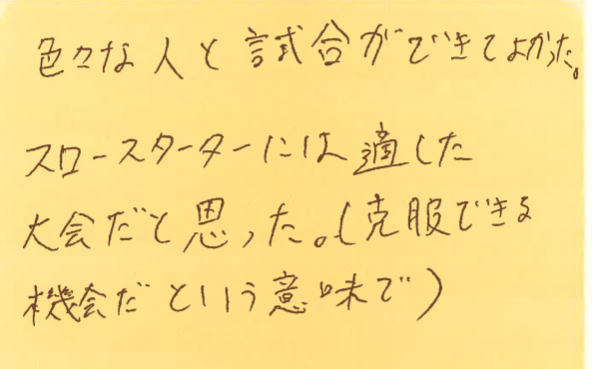 色々な人と試合ができてよかった。
スロースターターには適した
大会だと思った。(克服できる
機会だという意味で)